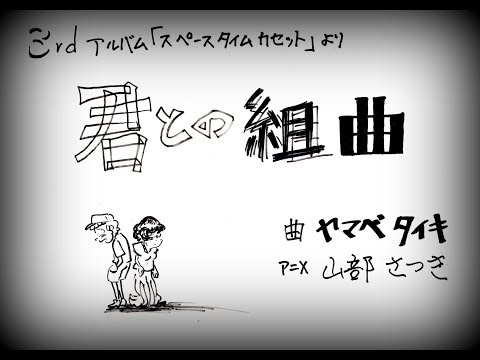 3rd アルバム「スペースタイムカセット」より
君との組曲
曲 ヤマベタイキ
アニメ 山部さつき